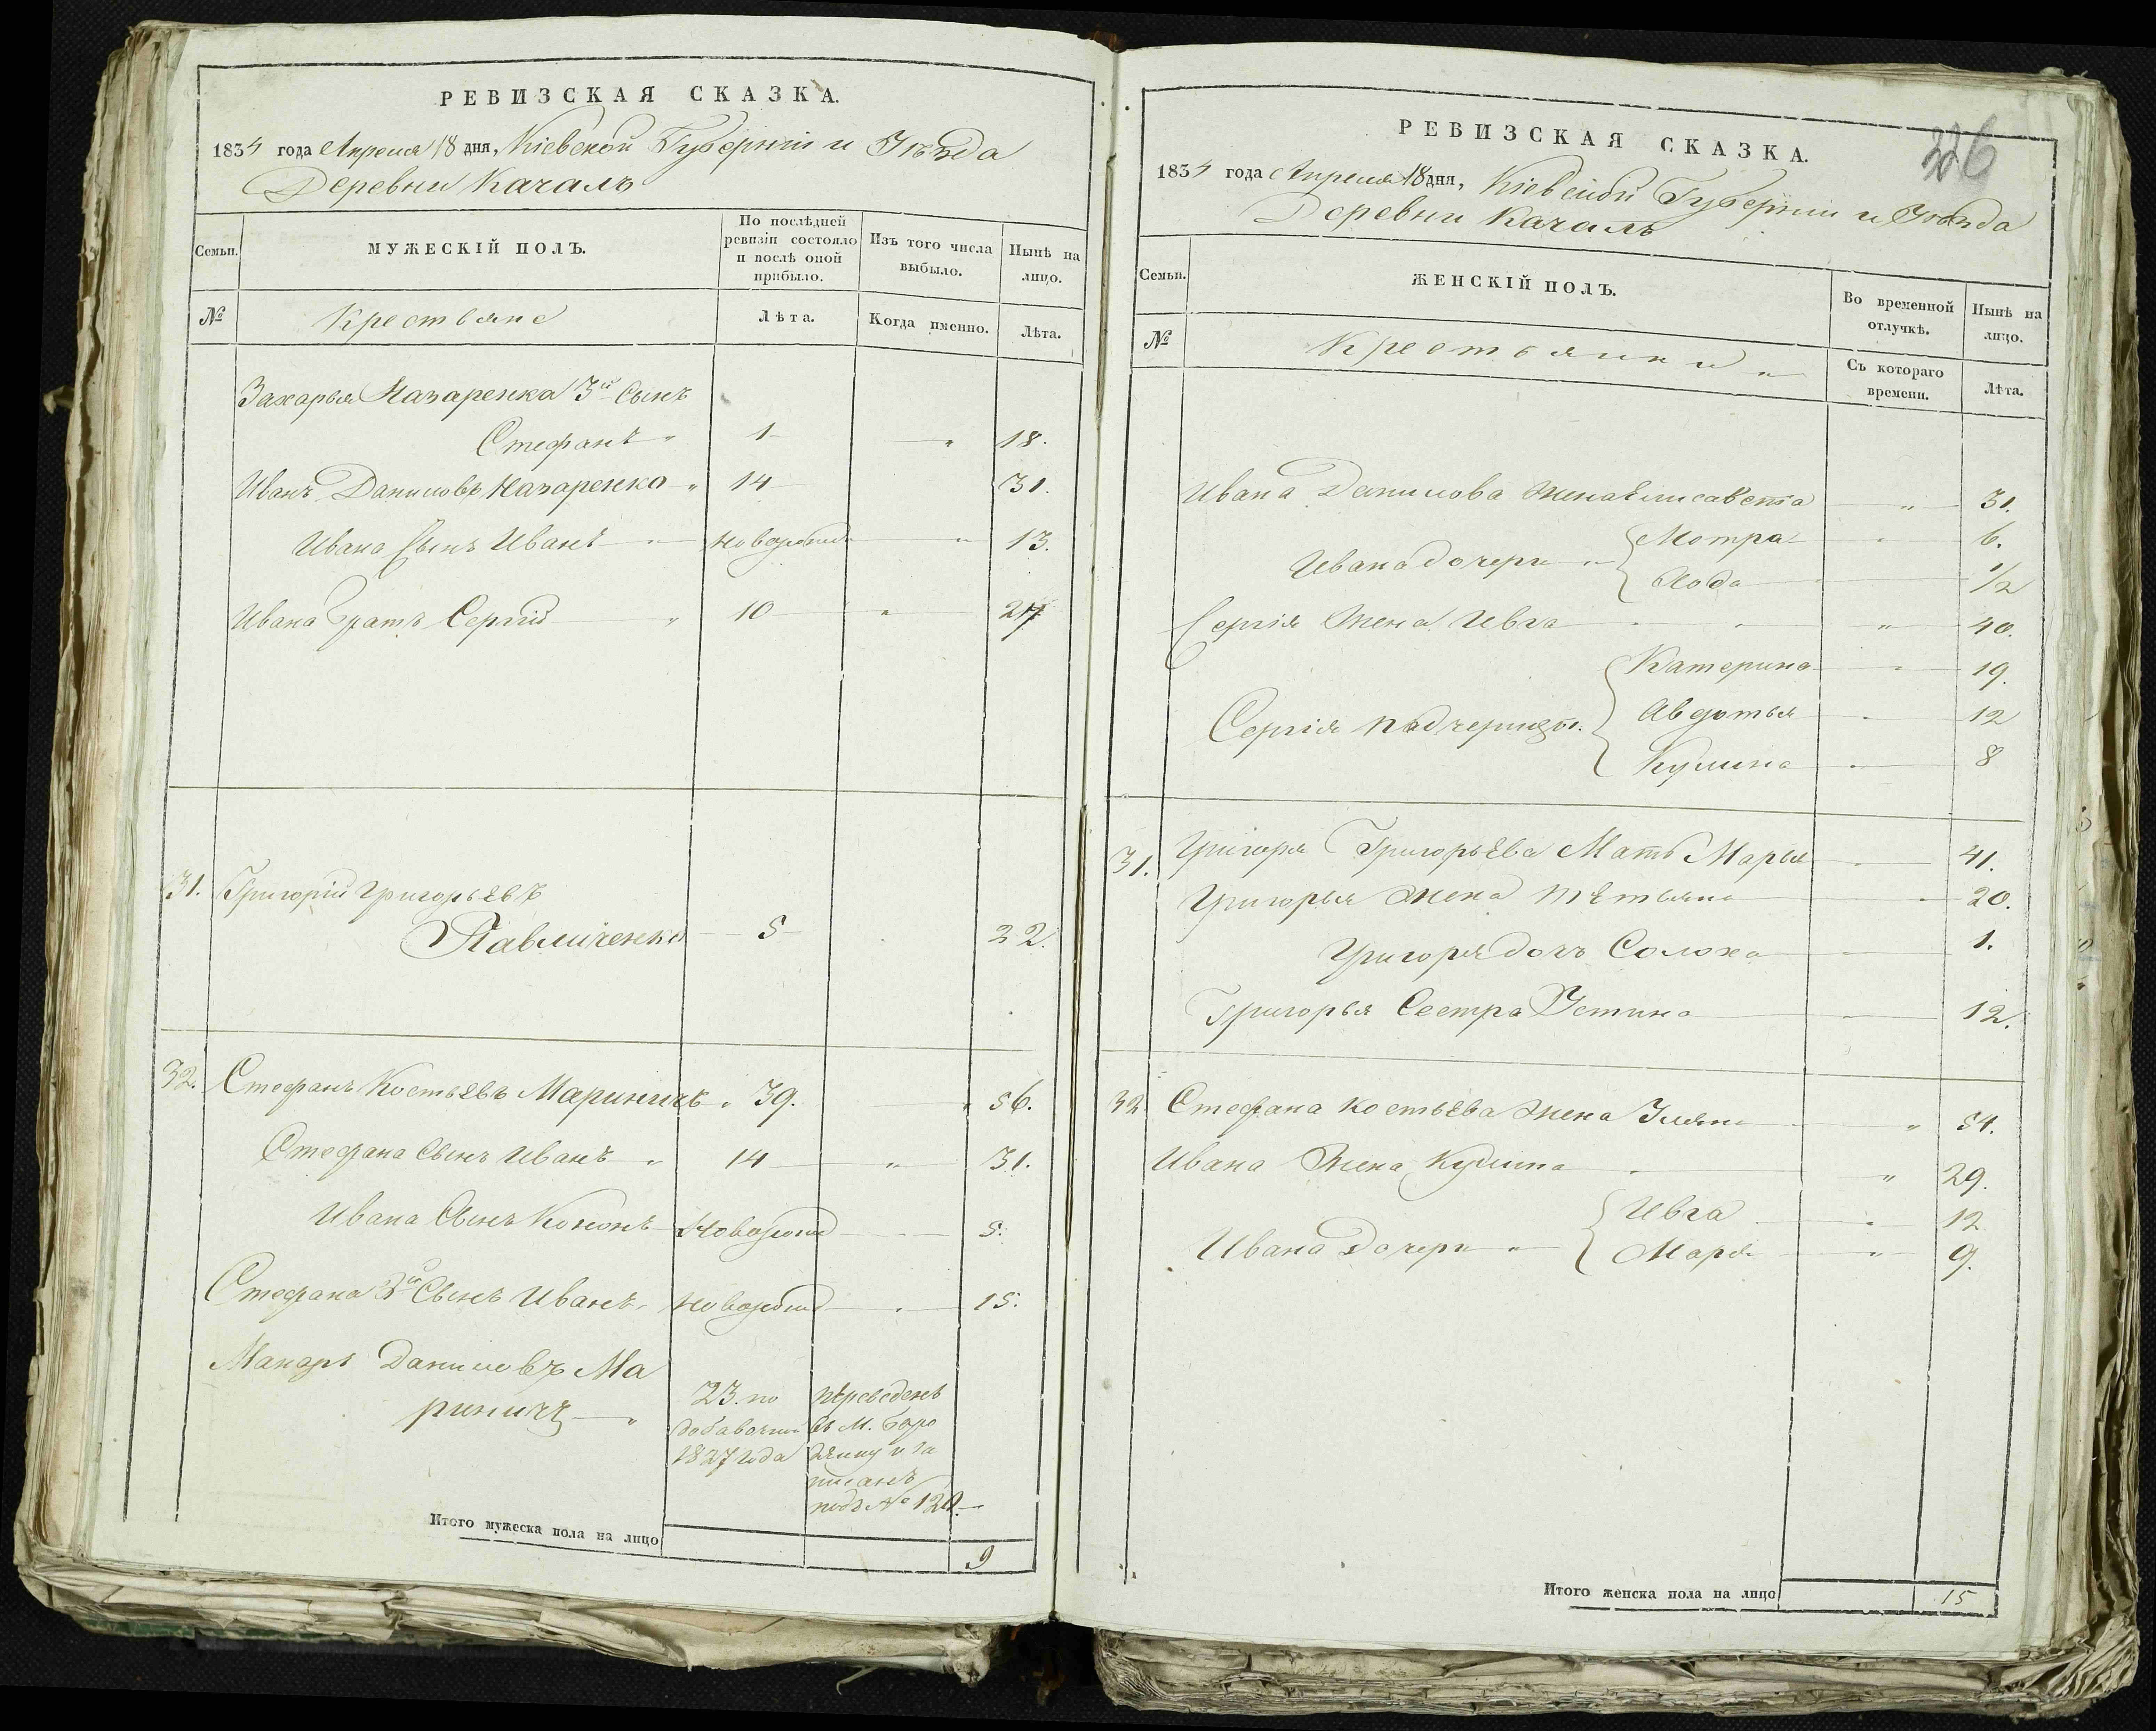 РЕВИЗСКАЯ СКАЗКА.
1834 года Апреля 18 дня, Кіевской Губерніи и Уѣзда
Деревни Качалъ
Семьи.
МУЖЕСКІЙ ПОЛЪ.
По послѣдней ревизіи состояло и послѣ оной прибыло.
Изъ того числа выбыло.
Нынѣ на лицо.
№
Крестьяне
Лѣта.
Когда именно.
Лѣта.
Захарья Назаренка 3й Сынъ
Стефанъ 1 18.
Иванъ Даниловъ Назаренко 14 31.
Ивана Сынъ Иванъ новорожд 13.
Ивана Братъ Сергій 10 27
31. Григорій Григорьевъ
Павличенко 5 22.
32. Стефанъ Костьевъ Мариничъ 39. 56.
Стефана Сынъ Иванъ 14 31.
Ивана Сынъ Кононъ Новорожд 5.
Стефана 3й Сынъ Иванъ новорожд 15.
Макаръ Даниловъ Ма
риничъ 23. по переведенъ
добавочной въ М. Боро
1827 года дянку и за
писанъ
подъ №
Итого мужеска пола на лицо 9
РЕВИЗСКАЯ СКАЗКА.
226
1834 года Апреля 18 дня, Кіевской Губерніи и Уѣзда
Деревни Качалъ
Семьи.
ЖЕНСКІЙ ПОЛЪ.
Во временной отлучкѣ.
Нынѣ на лицо.
№
Крестьянки
Съ котораго времени.
Лѣта.
Ивана Данилова жена Елисавета 31.
Ивана дочери Мотра 6.
1/2
Сергія Жена Ивга 40.
Катерина 19.
Сергія падчерицы. Авдотья 12
Кулина 8
31. Григоря Григорьева Мать Марья 41.
Григорья жена Тетьяна 20.
Григоря дочь Солоха 1.
Григорья Сестра Устина 12.
32 Стефана Костьева жена Уляна 51.
Ивана Жена Кулина 29.
Ивана Дочери Ивга 12
Марья 9.
Итого женска пола на лицо 15